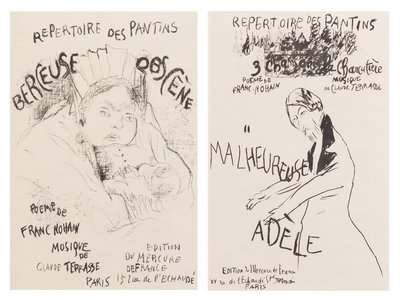 REPERTOIRE DES PANTINS
BERCEUSE OBSCÈNE
POEME DE
FRANC NOHAIN
MUSIQUE
DE
CLAUDE TERRASSE
PARIS
EDITION
DU MERCURE
DE FRANCE
15 Rue de l'ECHAUDÉ
REPERTOIRE DES PANTINS
3 Chansons à la Charcutière
POEME DE
FRANC-NOHAIN
MUSIQUE
DE CLAUDE TERRASSE
"MALHEUREUSE
ADÈLE
EDITION du Mercure de France
rue de l'Echaudé St Germain
PARIS